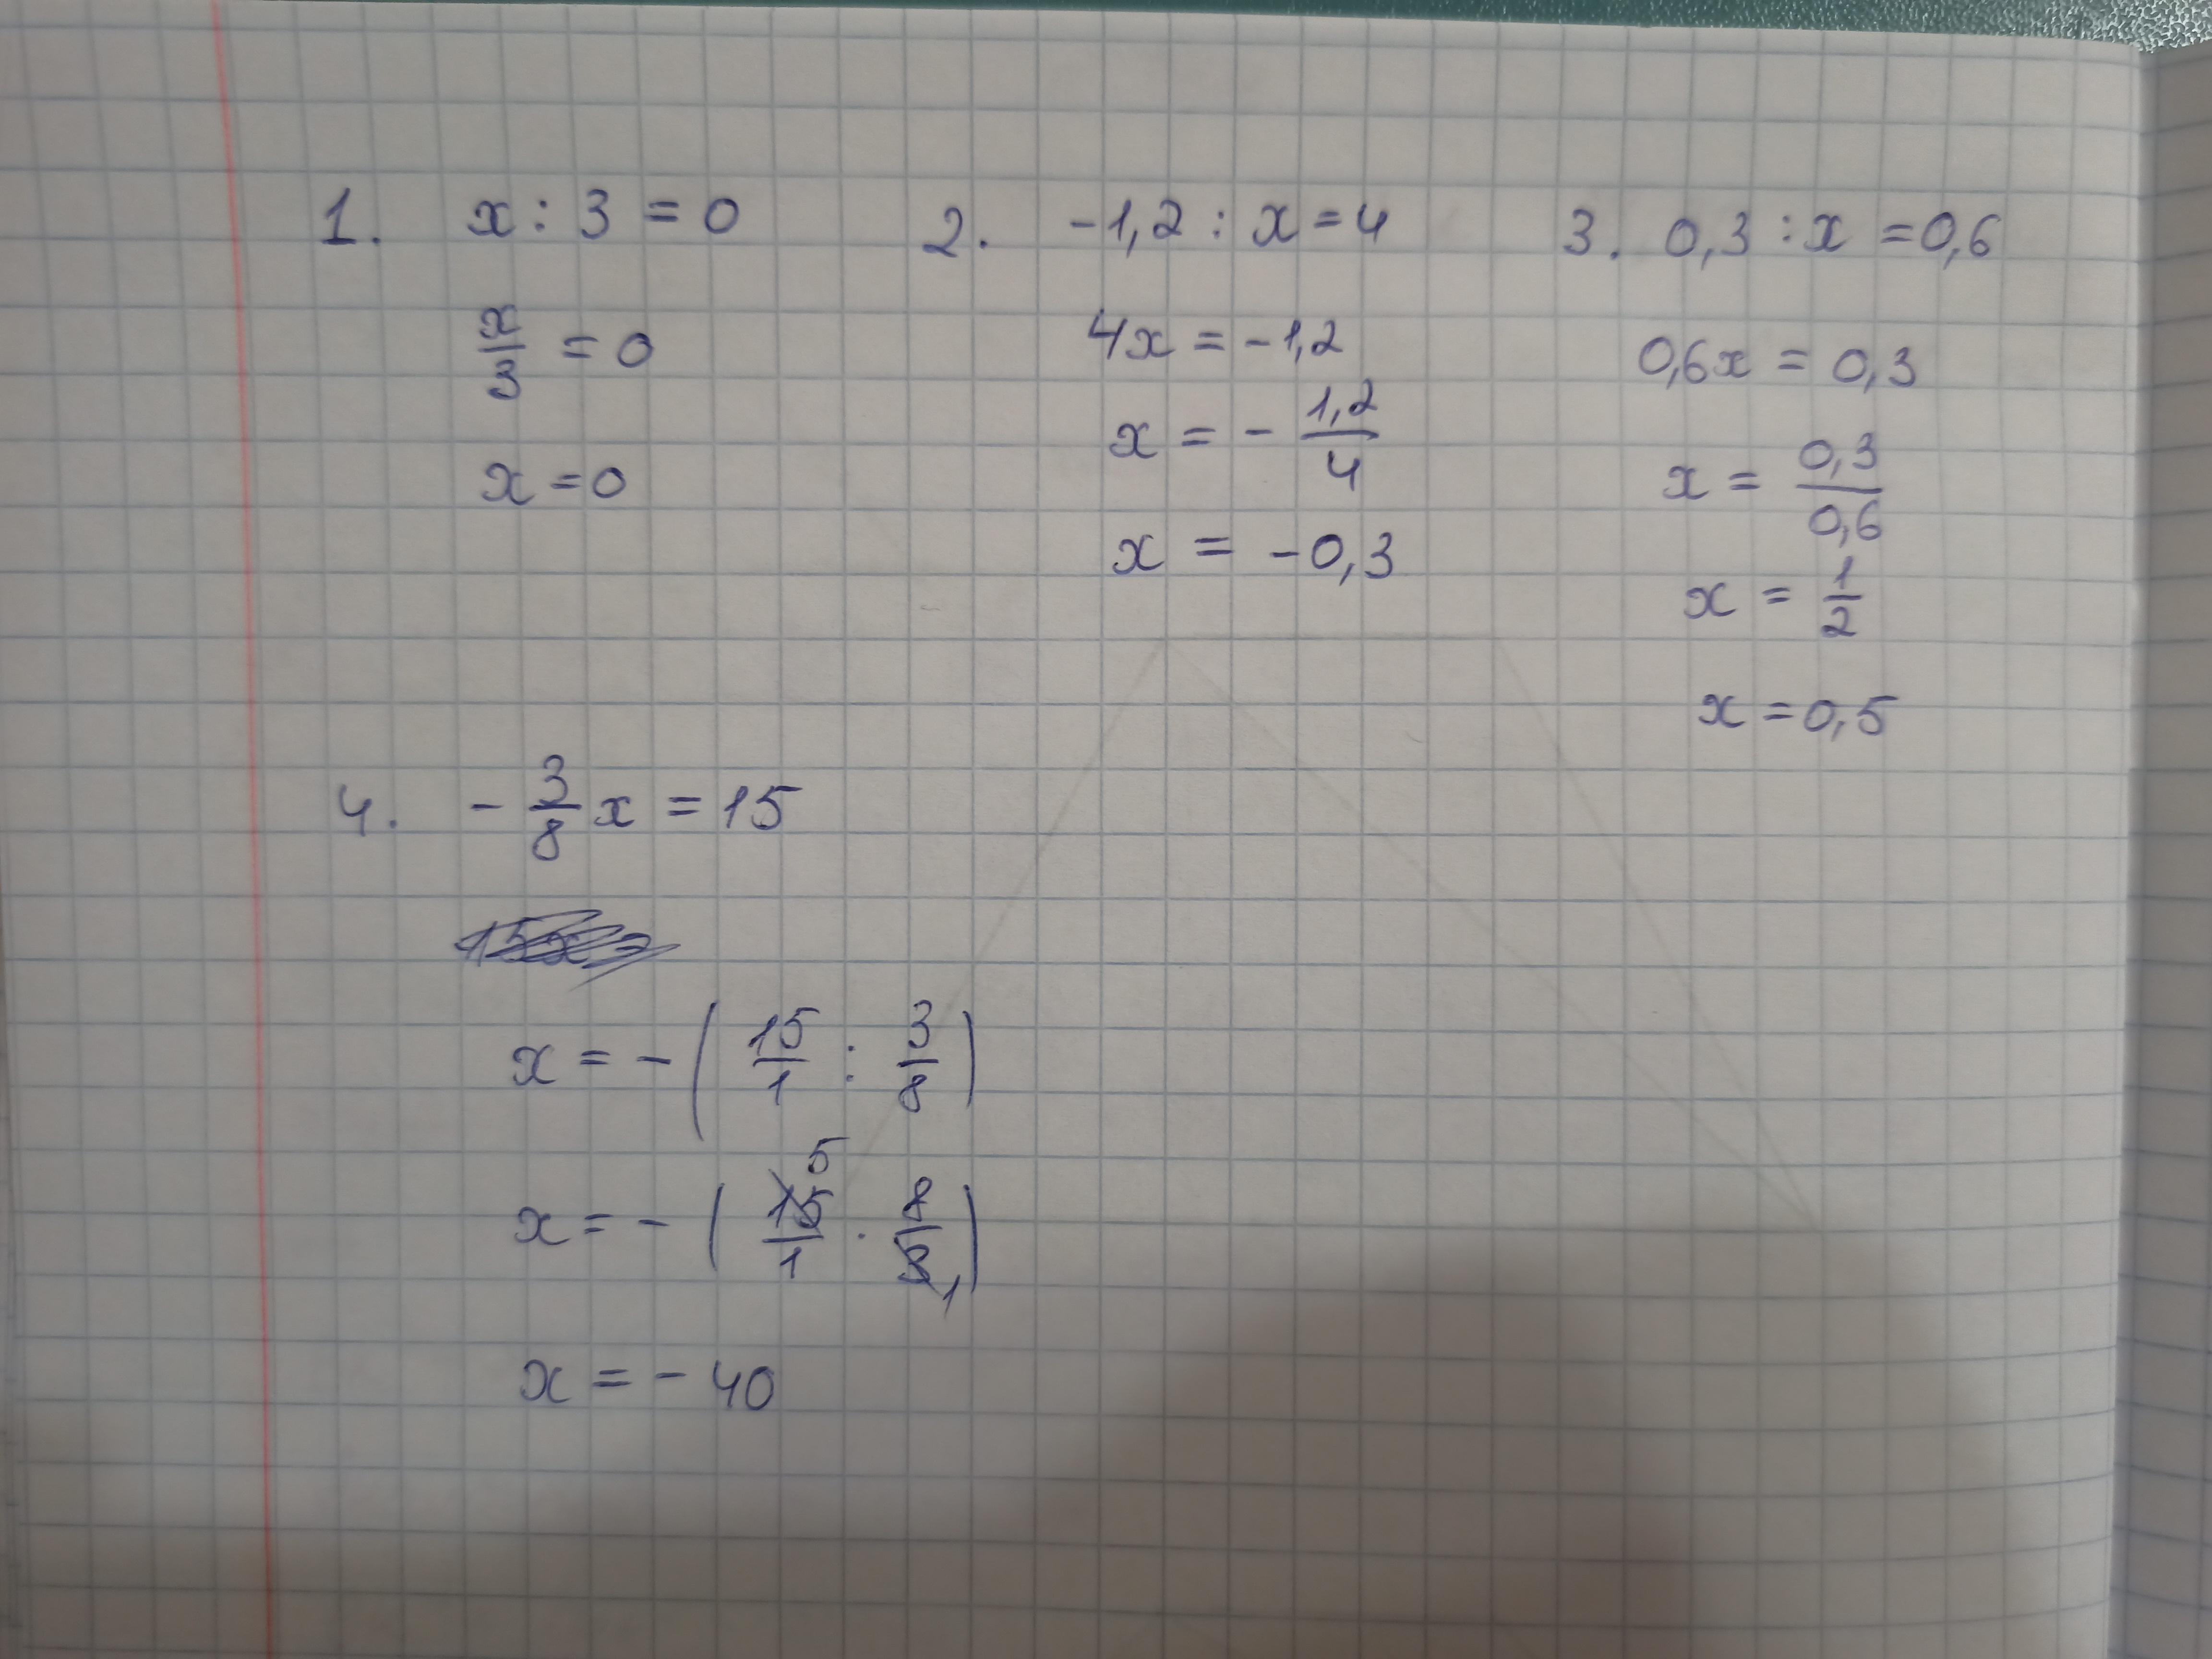 1. x : 3 = 0
x/3 = 0
x = 0
2. -1,2 : x = 4
4x = -1,2
x = - 1,2/4
x = -0,3
3. 0,3 : x = 0,6
0,6x = 0,3
x = 0,3/0,6
x = 1/2
x = 0,5
4. - 3/8 x = 15
x = - ( 15/1 : 3/8 )
x = - ( 15/1 · 8/3 ) 5 1
x = - 40